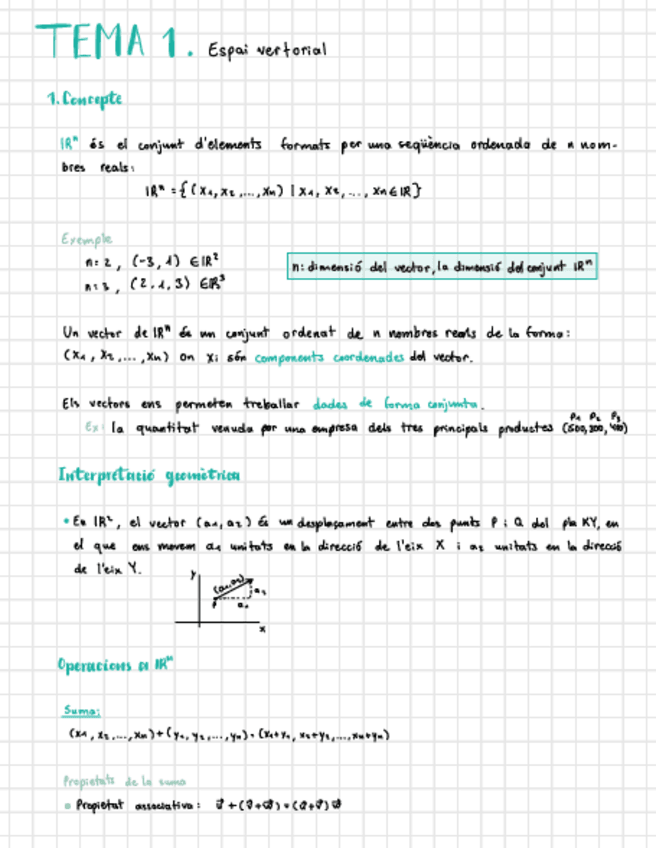 TEMA 1. Espai vertorial
1. Concepte
IRⁿ és el conjunt d'elements formats per una seqüència ordenada de n nom-
bres reals:
IRⁿ = { (x₁, x₂, ..., xₙ) | x₁, x₂, ..., xₙ ∈ IR }
Exemple
n=2, (-3, 1) ∈ IR²
n=3, (2, 1, 3) ∈ IR³
n: dimensió del vector, la dimensió del conjunt IRⁿ
Un vector de IRⁿ és un conjunt ordenat de n nombres reals de la forma:
(x₁, x₂, ..., xₙ) on xᵢ són components coordenades del vector.
Els vectors ens permeten treballar dades de forma conjunta.
P₁ P₂ P₃
Ex: la quantitat venuda per una empresa dels tres principals productes (500, 300, 400)
Interpretació geomètrica
• En IR², el vector (a₁, a₂) és un desplaçament entre dos punts P i Q del pla XY, en
el que ens movem a₁ unitats en la direcció de l'eix X i a₂ unitats en la direcció
de l'eix Y.
y
(a₁, a₂)
a₂
P
a₁
x
Operacions a IRⁿ
Suma:
(x₁, x₂, ..., xₙ) + (y₁, y₂, ..., yₙ) = (x₁+y₁, x₂+y₂, ..., xₙ+yₙ)
Propietats de la suma
• Propietat associativa: u⃗ + (v⃗ + w⃗) = (u⃗ + v⃗) w⃗